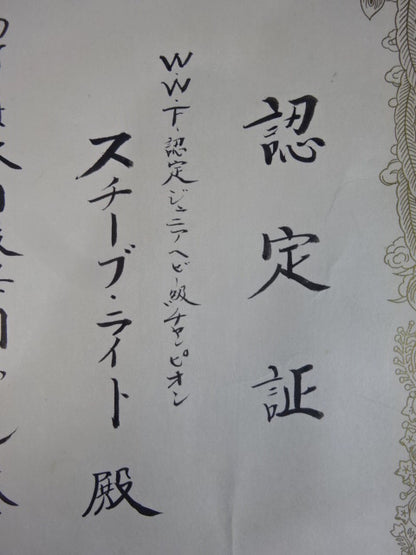 認定証
W.W.F.認定ジュニアヘビー級チャンピオン
スチーブ・ライト 殿